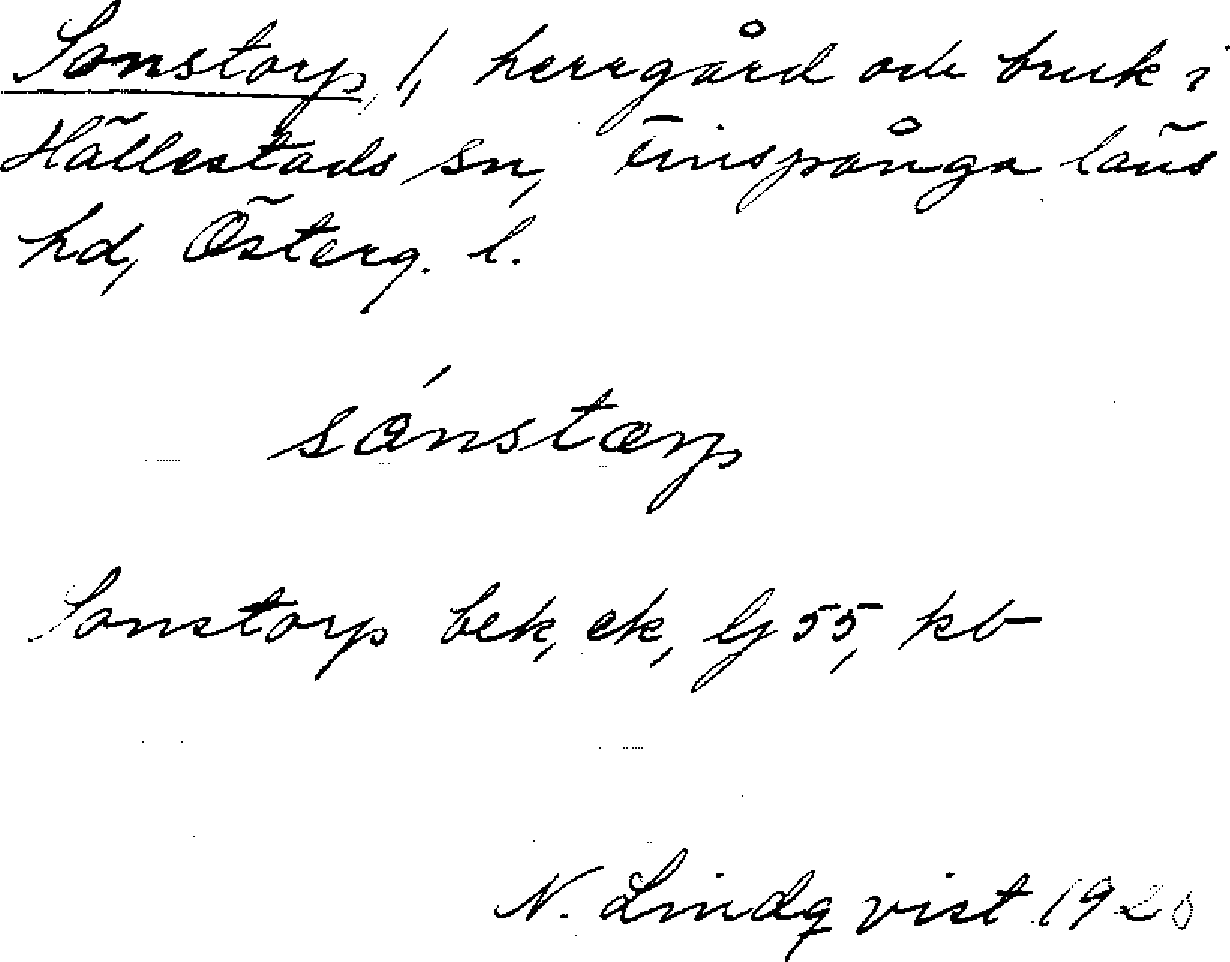 Sonstorp 1, herrgård och bruk i
Hällestads sn, Finspånga läns
hd, Österg. l.
sónstorp
Sonstorp bek, ek, Gj 55, kb
N. Lindqvist 1920